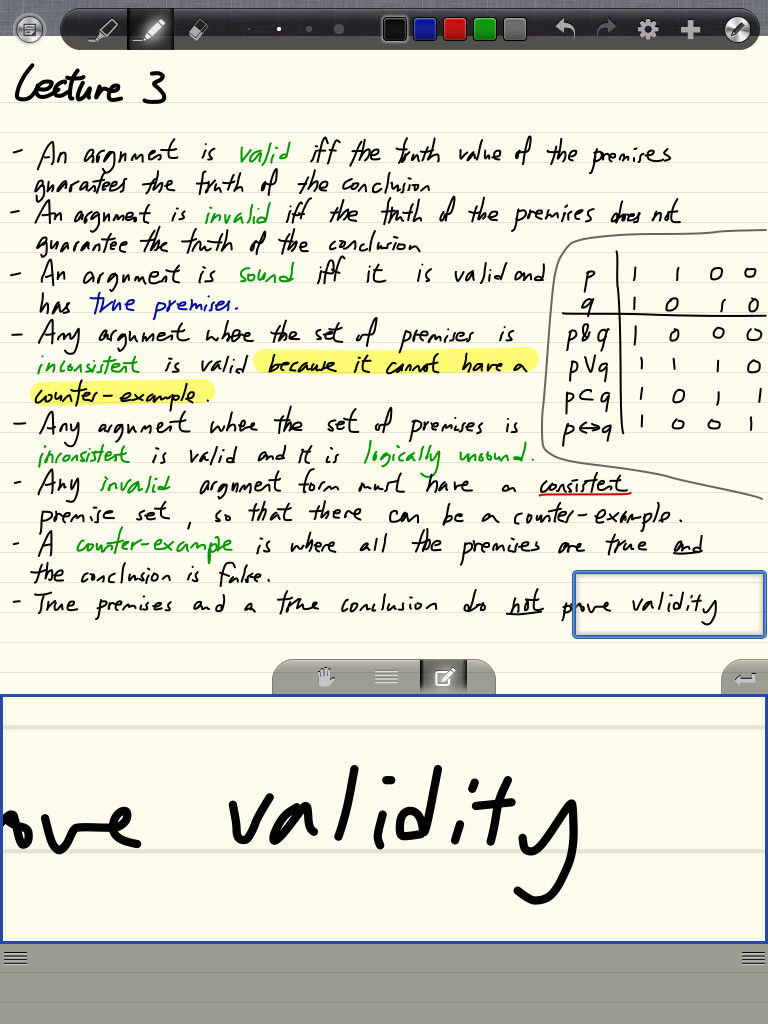 Lecture 3
- An argument is valid iff the truth value of the premises
guarantees the truth of the conclusion
- An argument is invalid iff the truth of the premises does not
guarantee the truth of the conclusion
- An argument is sound iff it is valid and
has true premises.
- Any argument where the set of premises is
inconsistent is valid because it cannot have a
counter-example.
- Any argument where the set of premises is
inconsistent is valid and it is logically unsound.
- Any invalid argument form must have a consistent
premise set, so that there can be a counter-example.
- A counter-example is where all the premises are true and
the conclusion is false.
- True premises and a true conclusion do not prove validity
p | 1 1 0 0
q | 1 0 1 0
p&q | 1 0 0 0
p∨q | 1 1 1 0
p⊂q | 1 0 1 1
p↔q | 1 0 0 1
ove validity